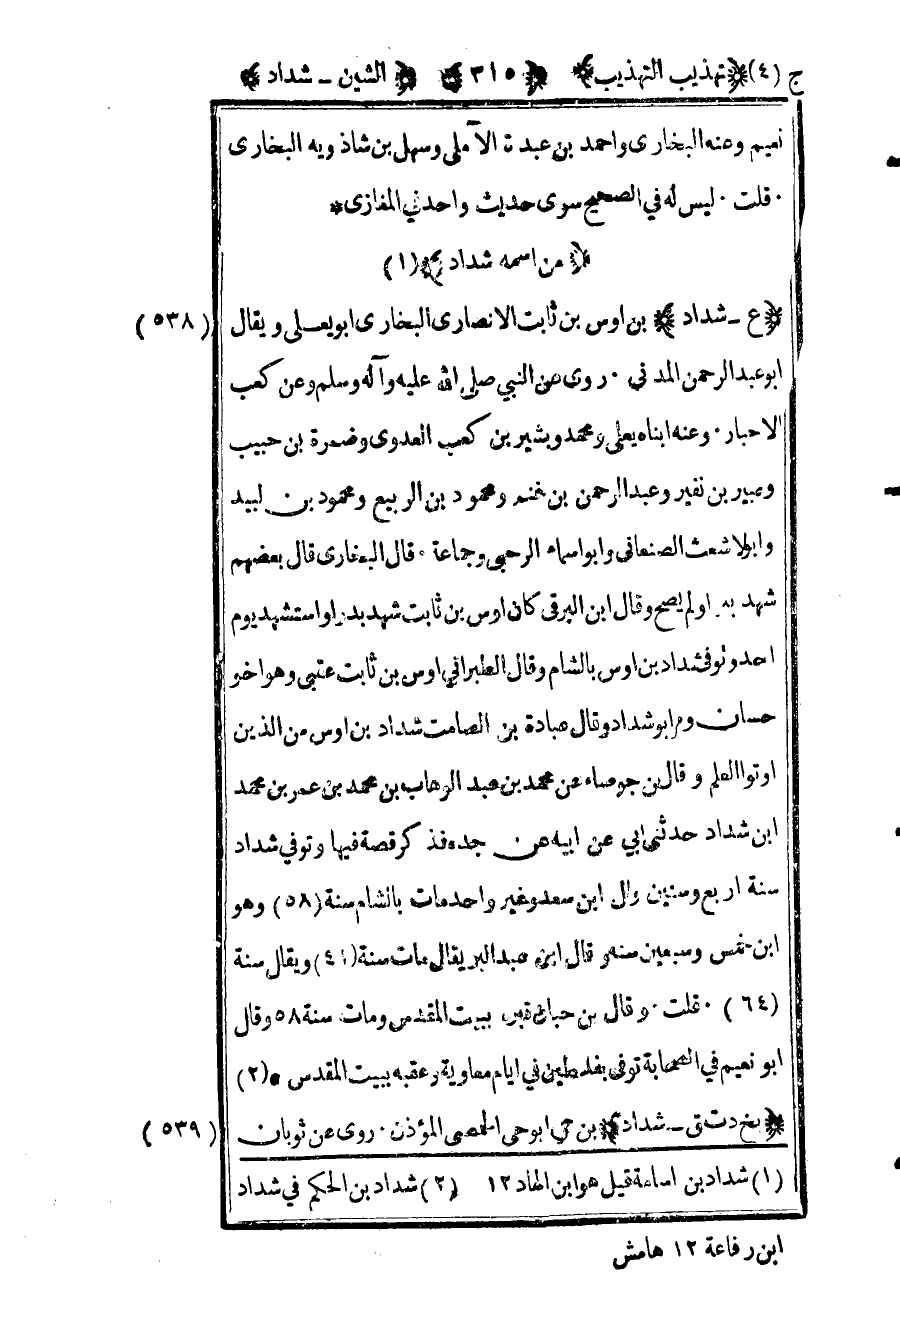 ج (٤) ﴿تهذيب التهذيب﴾ ﴿٣١٥﴾ ﴿الشين - شداد﴾
نعيم وعنه البخارى واحمد بن عبدة الآملى وسهل بن شاذويه البخارى
٠ قلت ٠ ليس له في الصحيح سوى حديث واحد في المغازى*
﴿من اسمه شداد﴾ (١)
﴿ع - شداد﴾ بن اوس بن ثابت الانصارى البخارى ابويعلى ويقال (٥٣٨)
ابوعبدالرحمن المدني ٠ روى عن النبي صلى الله عليه وآله وسلم وعن كعب
الاحبار ٠ وعنه ابناه يعلى ومحمد وبشير بن كعب العدوى وضمرة بن حبيب
وجبير بن نفير وعبدالرحمن بن غنم ومحمود بن الربيع ومحمود بن لبيد
وابوالاشعث الصنعانى وابواسماء الرحبى وجماعة ٠ قال البخارى قال بعضهم
شهد بدرا ولم يصح وقال ابن البرقى كان اوس بن ثابت شهد بدرا واستشهد يوم
احد وتوفى شداد بن اوس بالشام وقال الطبراني اوس بن ثابت عقبى وهواخو
حسان وهو ابوشداد وقال عبادة بن الصامت شداد بن اوس من الذين
اوتوا العلم و قال بن جوصاء عن محمد بن عبد الوهاب بن محمد بن عمر بن محمد
ابن شداد حدثني ابي عن ابيه عن جده فذكر قصة فيها وتوفي شداد
سنة اربع وستين وقال ابن سعد وغير واحد مات بالشام سنة (٥٨) وهو
ابن خمس وسبعين سنة و قال ابن عبدالبر يقال مات سنة (٤١) ويقال سنة
(٦٤) ٠ قلت ٠ وقال بن حبان قبره ببيت المقدس ومات سنة ٥٨ وقال
ابو نعيم في الصحابة توفى بفلسطين في ايام معاوية وعقبه ببيت المقدس • (٢)
﴿بخ د ت ق - شداد﴾ بن حي ابوحى الحمصى المؤذن ٠ روى عن ثوبان (٥٣٩)
(١) شداد بن امامة قيل هو ابن الهاد ١٢ (٢) شداد بن الحكم في شداد
ابن رفاعة ١٢ هامش